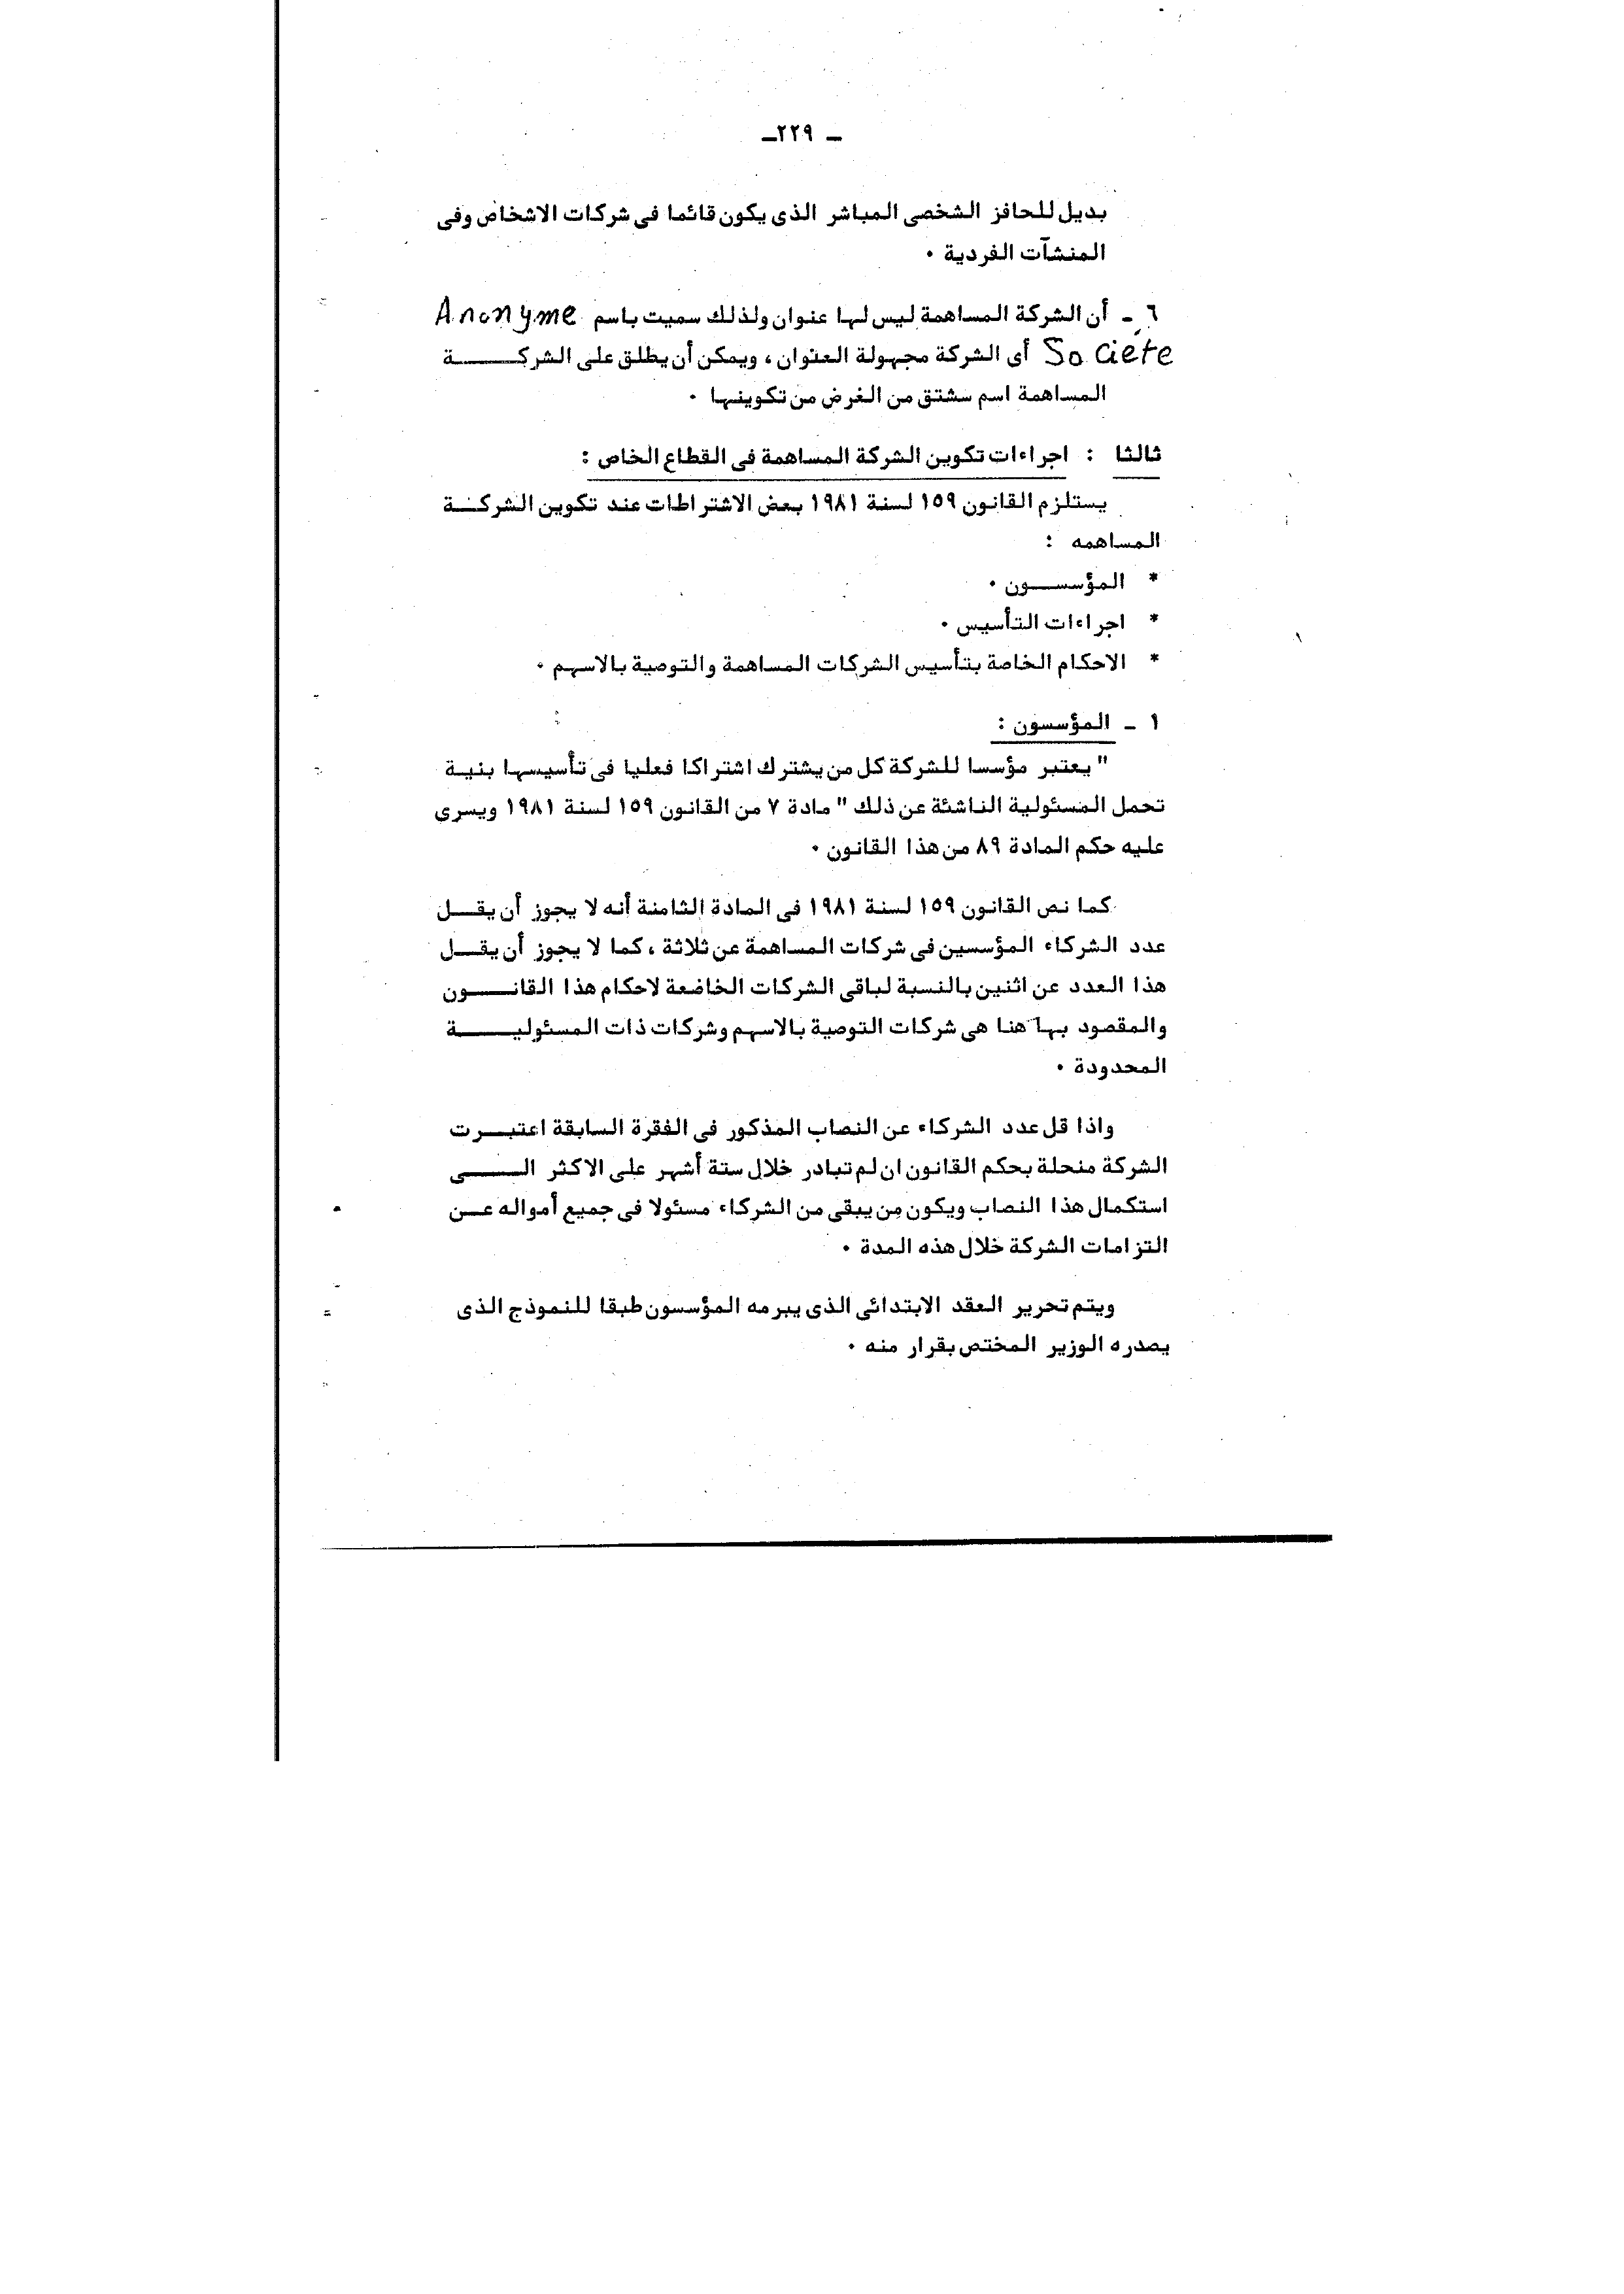 ـ ٢٢٩ـ
بديل للحافز الشخصى المباشر الذى يكون قائما فى شركات الاشخاص وفى
المنشآت الفردية ٠
٦ ـ أن الشركة المساهمة ليس لها عنوان ولذلك سميت باسم Anonyme
Societe أى الشركة مجهولة العنوان ، ويمكن أن يطلق على الشركـــــة
المساهمة اسم سشتق من الغرض من تكوينها ٠
ثالثا : اجراءات تكوين الشركة المساهمة فى القطاع الخاص :
يستلزم القانون ١٥٩ لسنة ١٩٨١ بعض الاشتراطات عند تكوين الشركــة
المساهمه :
* المؤسســـون ٠
* اجراءات التأسيس ٠
* الاحكام الخاصة بتأسيس الشركات المساهمة والتوصية بالاسهم ٠
١ ـ المؤسسون :
" يعتبر مؤسسا للشركة كل من يشترك اشتراكا فعليا فى تأسيسها بنيـة
تحمل المسئولية الناشئة عن ذلك " مادة ٧ من القانون ١٥٩ لسنة ١٩٨١ ويسرى
عليه حكم المادة ٨٩ من هذا القانون ٠
كما نص القانون ١٥٩ لسنة ١٩٨١ فى المادة الثامنة أنه لا يجوز أن يقــل
عدد الشركاء المؤسسين فى شركات المساهمة عن ثلاثة ، كما لا يجوز أن يقــل
هذا العدد عن اثنين بالنسبة لباقى الشركات الخاضعة لاحكام هذا القانـــــون
والمقصود بها هنا هى شركات التوصية بالاسهم وشركات ذات المسئوليـــــة
المحدودة ٠
واذا قل عدد الشركاء عن النصاب المذكور فى الفقرة السابقة اعتبـــرت
الشركة منحلة بحكم القانون ان لم تبادر خلال ستة أشهر على الاكثر الـــــى
استكمال هذا النصاب ويكون من يبقى من الشركاء مسئولا فى جميع أمواله عــن
التزامات الشركة خلال هذه المدة ٠
ويتم تحرير العقد الابتدائى الذى يبرمه المؤسسون طبقا للنموذج الذى
يصدره الوزير المختص بقرار منه ٠